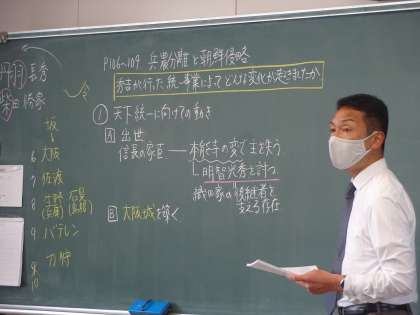 P106~109 兵農分離と朝鮮侵略
秀吉が行った統一事業によってどんな変化が起きましたか
① 天下統一に向けての動き
A 出世
信長の家臣 ― 本能寺の変で主を失う
明智光秀を討つ
織田家の後継者を
支える存在
B 大阪城を築く
丹羽長秀
柴田勝家
6 大阪
7 佐渡
8 石見
9 バテレン
刀狩
10